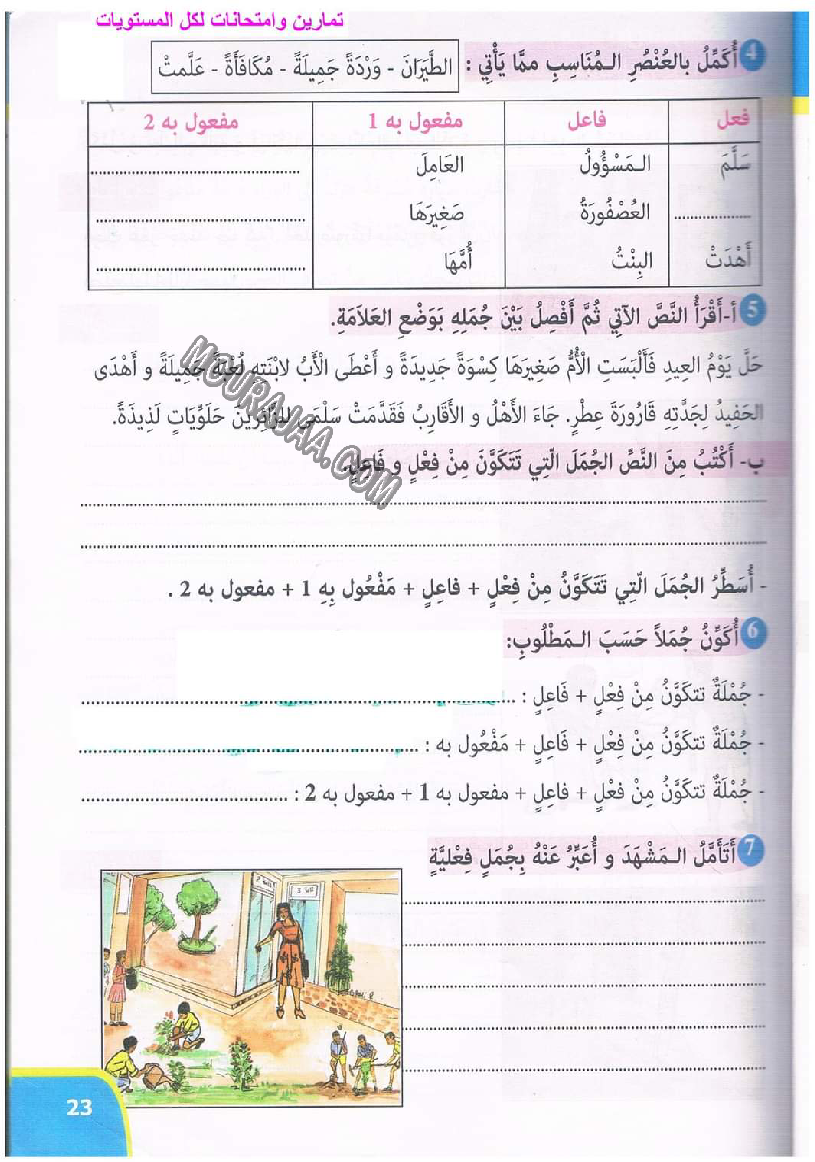 تمارين وامتحانات لكل المستويات
4 أُكَمِّلُ بالعُنْصُرِ الـمُنَاسِبِ ممَّا يَأْتِي : الطَّيَرَانَ - وَرْدَةً جَمِيلَةً - مُكَافَأَةً - عَلَّمتْ
فعل فاعل مفعول به 1 مفعول به 2
سَلَّمَ الـمَسْؤُولُ العَامِلَ ..........
.......... العُصْفُورَةُ صَغِيرَهَا ..........
أَهْدَتْ البِنْتُ أُمَّهَا ..........
5 أ-أَقْرَأُ النَّصَّ الآتِي ثُمَّ أَفْصِلُ بَيْنَ جُمَلِهِ بَوَضْعِ العَلاَمَةِ.
حَلَّ يَوْمُ العِيدِ فَأَلْبَسَتِ الْأُمُّ صَغِيرَهَا كِسْوَةً جَدِيدَةً و أَعْطَى الْأَبُ لابْنَتِهِ لُعْبَةً جَمِيلَةً و أَهْدَى
الحَفِيدُ لِجَدَّتِهِ قَارُورَةَ عِطْرٍ. جَاءَ الأَهْلُ و الأَقَارِبُ فَقَدَّمَتْ سَلْمَى للزَّائِرِينَ حَلَوِيَّاتٍ لَذِيذَةً.
MOURAJAA.COM
ب- أَكْتُبُ مِنَ النَّصِّ الجُمَلَ الّتِي تَتَكَوَّنَ مِنْ فِعْلٍ و فَاعِلٍ.
- أُسَطِّرُ الجُمَلَ الّتِي تَتَكَوَّنُ مِنْ فِعْلٍ + فاعِلٍ + مَفْعُول بِهِ 1 + مفعول به 2 .
6 أُكَوِّنُ جُمَلاً حَسَبَ الـمَطْلُوبِ:
- جُمْلَةٌ تتكَوَّنُ مِنْ فِعْلٍ + فَاعِلٍ : ..........
- جُمْلَةٌ تتكَوَّنُ مِنْ فِعْلٍ + فَاعِلٍ + مَفْعُول به : ..........
- جُمْلَةٌ تتكَوَّنُ مِنْ فِعْلٍ + فاعِلٍ + مفعول به 1 + مفعول به 2 : ..........
7 أَتَأَمَّلُ الـمَشْهَدَ و أُعَبِّرُ عَنْهُ بِجُمَلٍ فِعْلِيَّةٍ
23